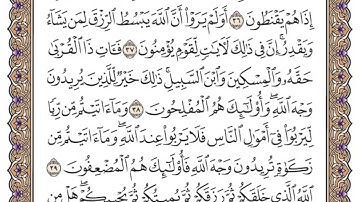 إِذَا هُمْ يَقْنَطُونَ ٣٦ أَوَلَمْ يَرَوْا۟ أَنَّ ٱللَّهَ يَبْسُطُ ٱلرِّزْقَ لِمَن يَشَآءُ
وَيَقْدِرُ ۚ إِنَّ فِى ذَٰلِكَ لَـَٔايَـٰتٍ لِّقَوْمٍ يُؤْمِنُونَ ٣٧ فَـَٔاتِ ذَا ٱلْقُرْبَىٰ
حَقَّهُۥ وَٱلْمِسْكِينَ وَٱبْنَ ٱلسَّبِيلِ ۚ ذَٰلِكَ خَيْرٌ لِّلَّذِينَ يُرِيدُونَ
وَجْهَ ٱللَّهِ ۖ وَأُو۟لَـٰٓئِكَ هُمُ ٱلْمُفْلِحُونَ ٣٨ وَمَآ ءَاتَيْتُم مِّن رِّبًا
لِّيَرْبُوَا۟ فِىٓ أَمْوَٰلِ ٱلنَّاسِ فَلَا يَرْبُوا۟ عِندَ ٱللَّهِ ۖ وَمَآ ءَاتَيْتُم مِّن
زَكَوٰةٍ تُرِيدُونَ وَجْهَ ٱللَّهِ فَأُو۟لَـٰٓئِكَ هُمُ ٱلْمُضْعِفُونَ ٣٩
ٱللَّهُ ٱلَّذِى خَلَقَكُمْ ثُمَّ رَزَقَكُمْ ثُمَّ يُمِيتُكُمْ ثُمَّ يُحْيِيكُمْ ۖ هَلْ مِن